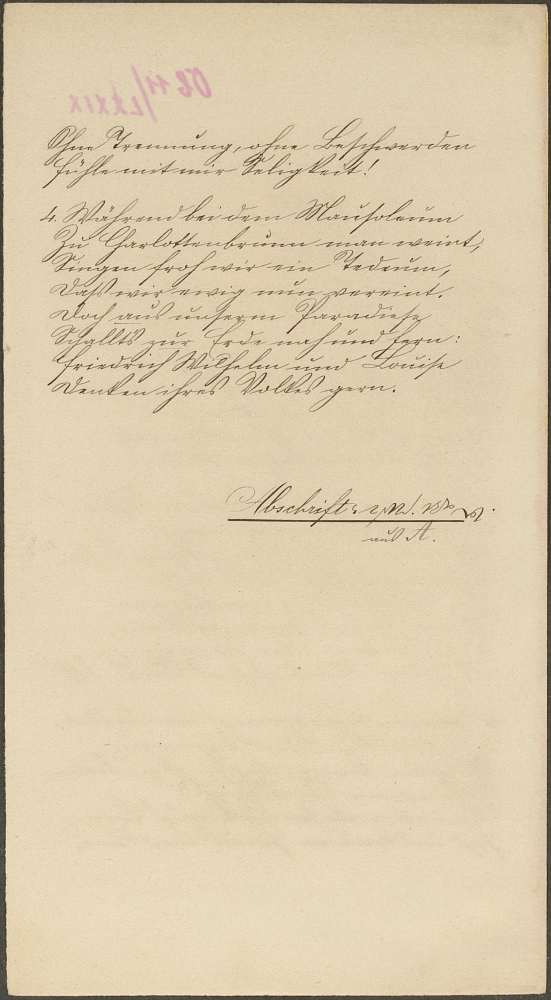 Ohne Trennung, ohne Beschwerden
Fühle mit mir Seligkeit!
4. Während bei dem Mausoleum
Zu Charlottenbrunn man weint,
Singen froh wir ein Tedeum,
Daß wir ewig nun vereint.
Doch aus unserm Paradiese
Schallts zur Erde nah und fern:
Friedrich Wilhelm und Louise
Denken ihres Volkes gern.
Abschrift:
aus A.